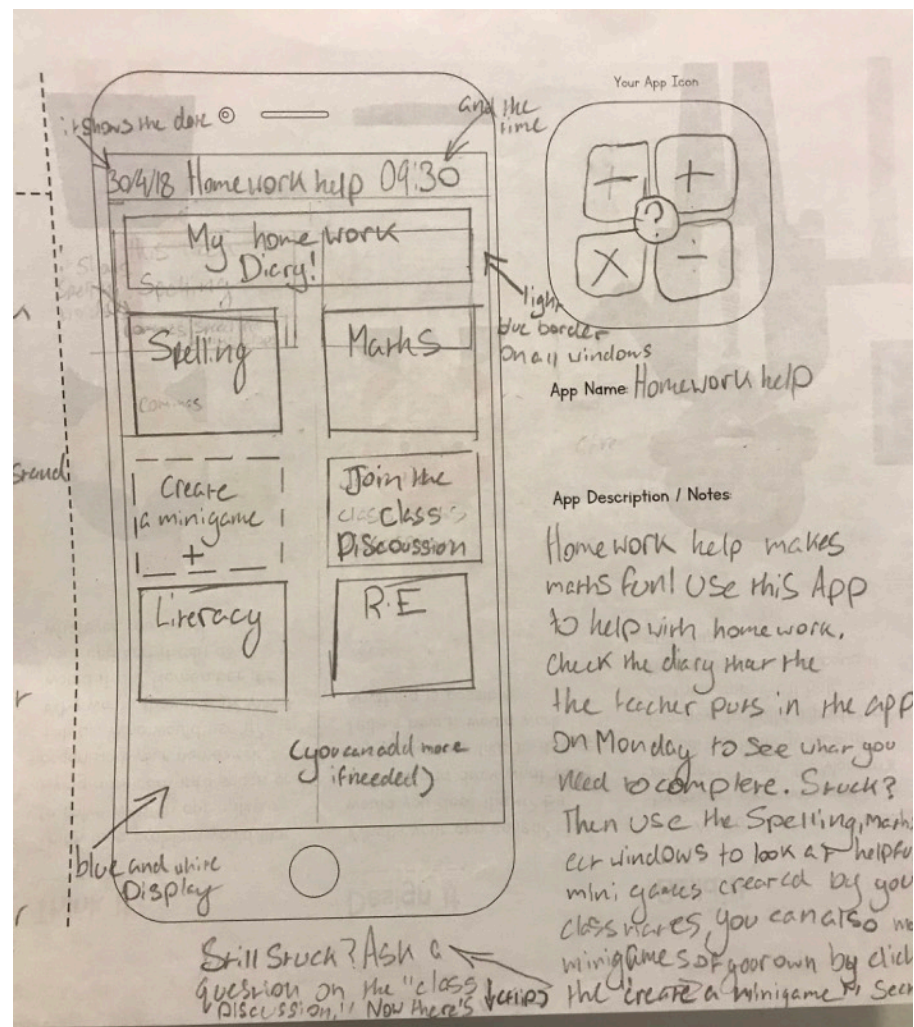 it shows the date
and the
time
30/4/18 Homework help 09:30
My homework
Diary!
light
blue border
on all windows
Spelling
Maths
Create
a minigame
+
Join the
class
Discoussion
Literacy
R.E
(you can add more
if needed)
blue and white
Display
Your App Icon
+ +
?
× ÷
App Name: Homework help
App Description / Notes:
Homework help makes
maths fun! Use this App
to help with homework,
check the diary that the
the teacher puts in the app
On Monday to see what you
need to complete. Stuck?
Then use the Spelling, Maths
ect windows to look at helpfu
mini games created by you
classmates, you can also
minigames of your own by click
the "create a minigame" sec
Still Stuck? Ask a
question on the "class
Discussion." Now there's